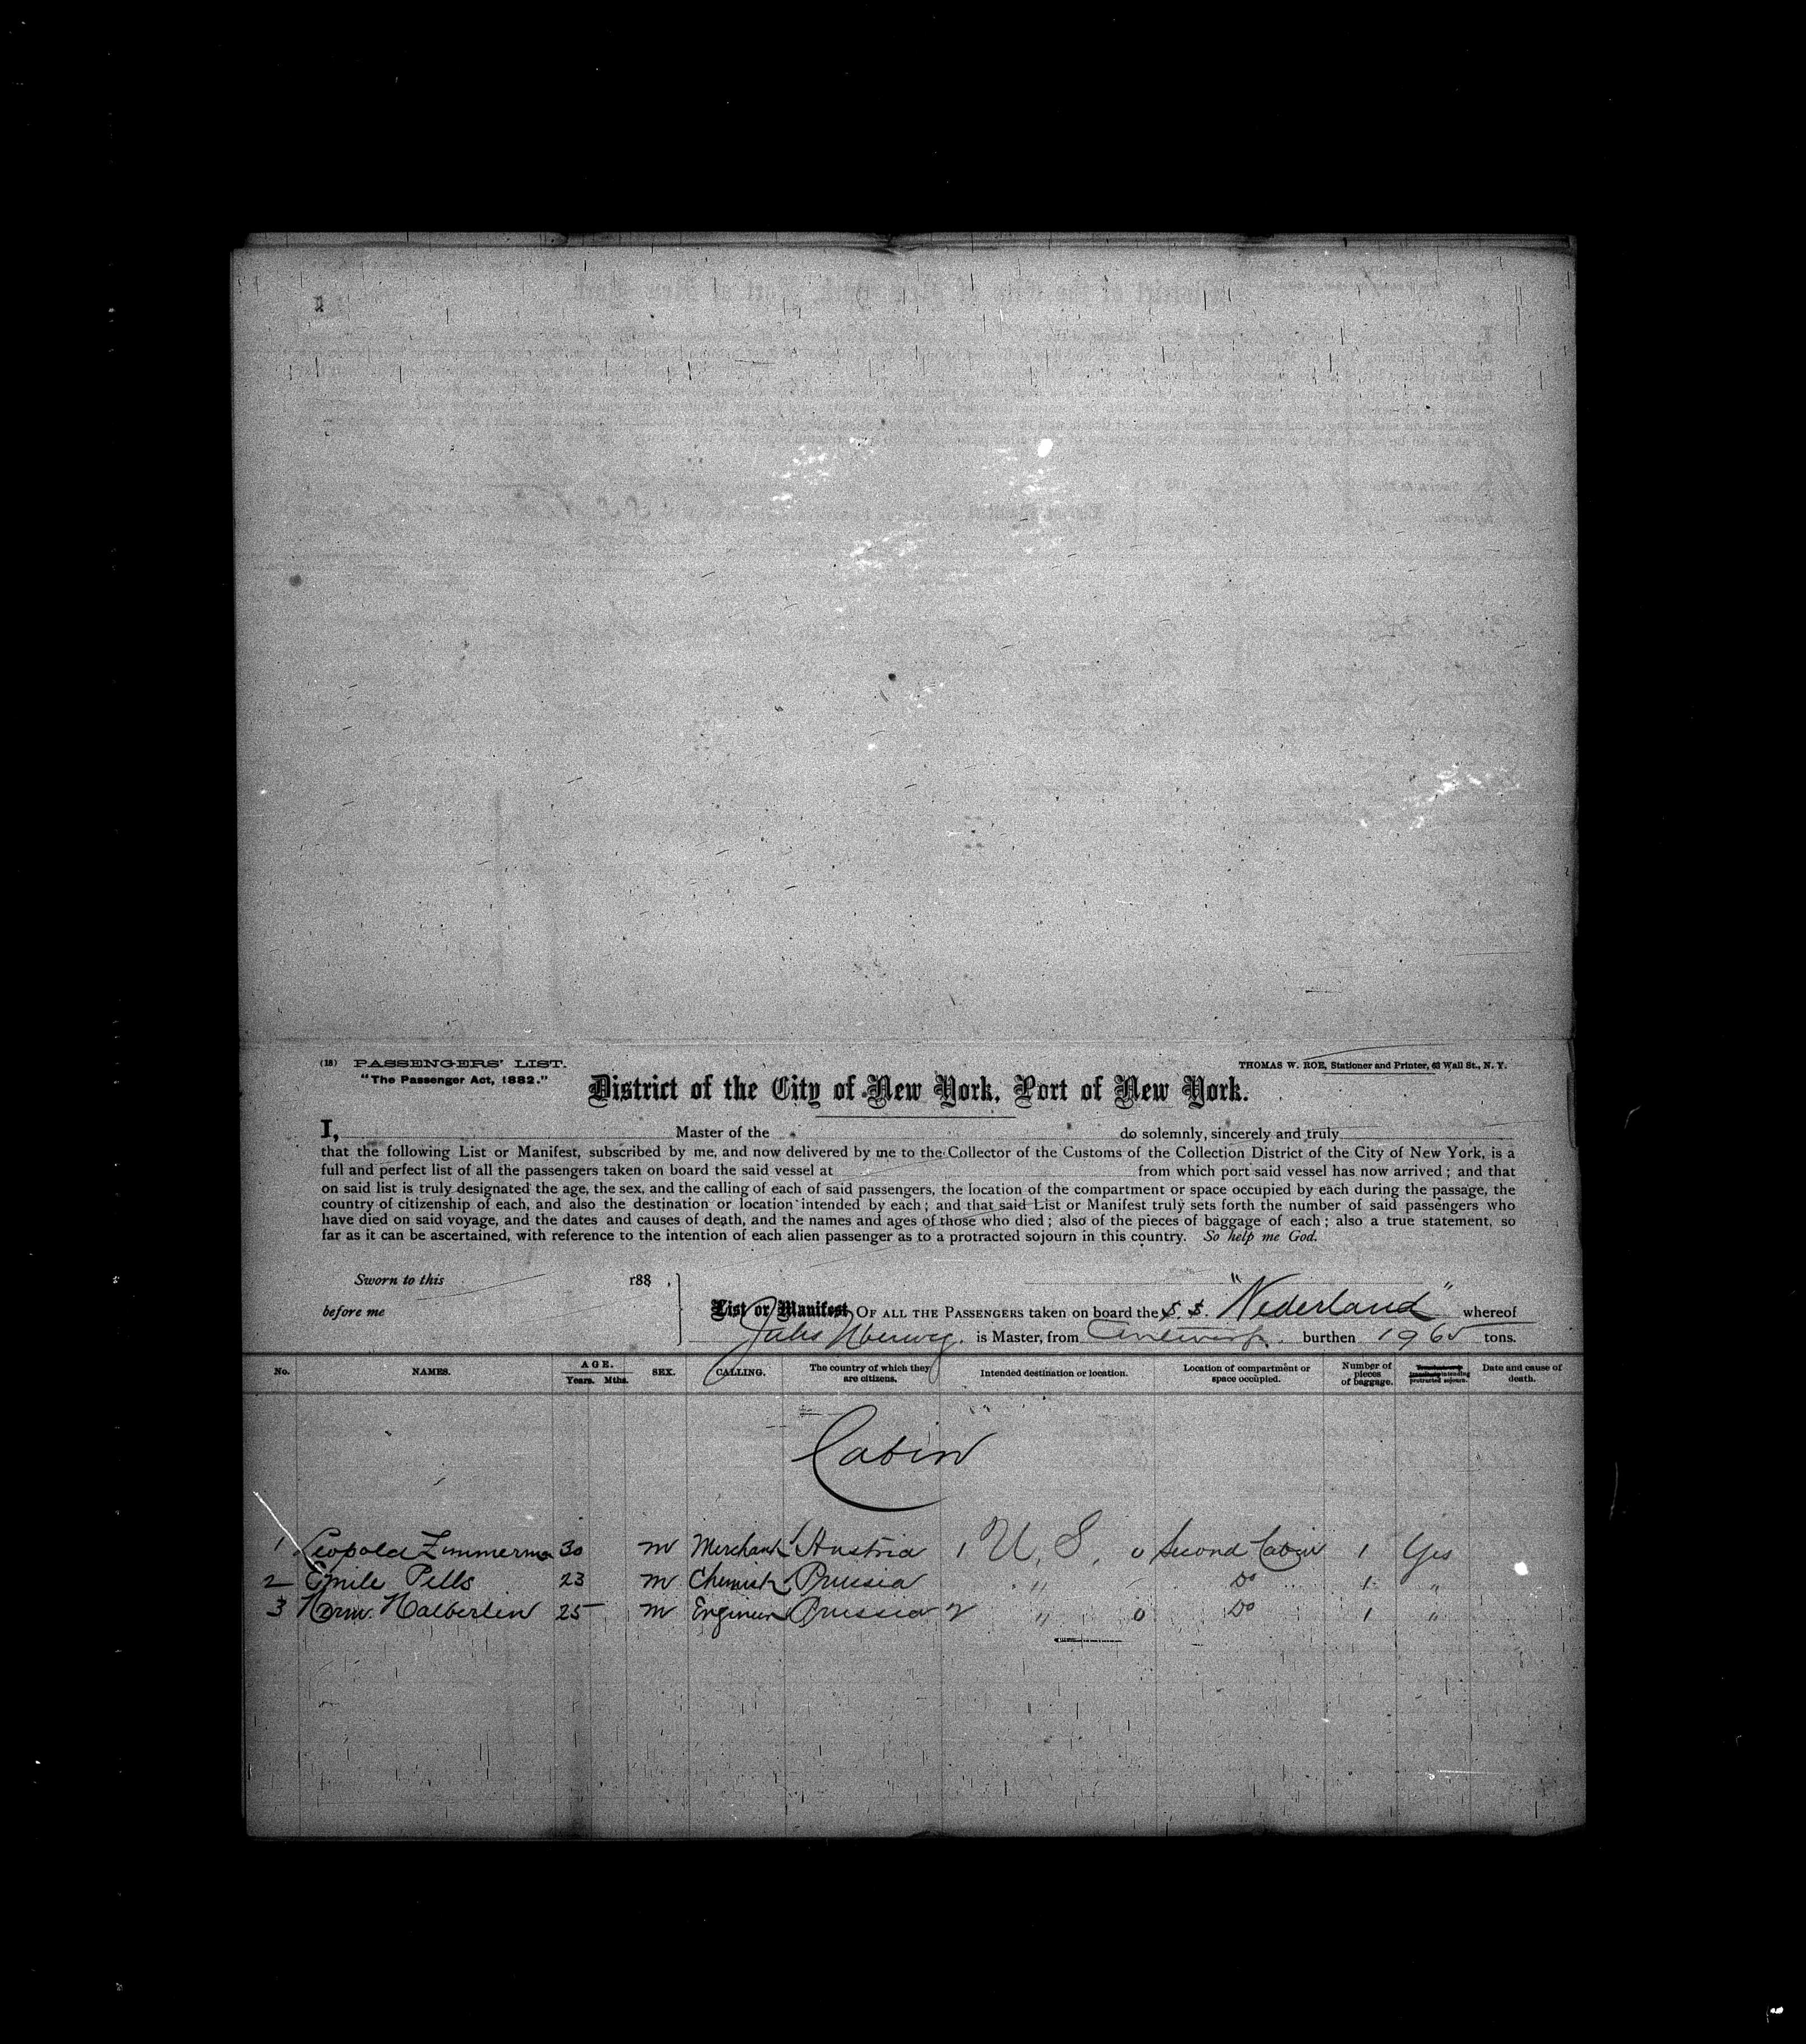 (18) PASSENGERS' LIST.
"The Passenger Act, 1882."
THOMAS W. ROE, Stationer and Printer, 63 Wall St., N. Y.
District of the City of New York, Port of New York.
I, Master of the do solemnly, sincerely and truly
that the following List or Manifest, subscribed by me, and now delivered by me to the Collector of the Customs of the Collection District of the City of New York, is a
full and perfect list of all the passengers taken on board the said vessel at from which port said vessel has now arrived ; and that
on said list is truly designated the age, the sex, and the calling of each of said passengers, the location of the compartment or space occupied by each during the passage, the
country of citizenship of each, and also the destination or location intended by each ; and that said List or Manifest truly sets forth the number of said passengers who
have died on said voyage, and the dates and causes of death, and the names and ages of those who died ; also of the pieces of baggage of each ; also a true statement, so
far as it can be ascertained, with reference to the intention of each alien passenger as to a protracted sojourn in this country. So help me God.
Sworn to this 188 .
before me
List or Manifest OF ALL THE PASSENGERS taken on board the S. S. "Nederland" whereof
is Master, from Antwerp. burthen 1965 tons.
No. NAMES. AGE. Years. Mths. SEX. CALLING. The country of which they are citizens. Intended destination or location. Location of compartment or space occupied. Number of pieces of baggage. intending protracted sojourn. Date and cause of death.
Cabin
1 Leopold Zimmerman 30 m Merchant Austria 1 U. S. 0 Second Cabin 1 Yes
2 Emile Pells 23 m Chemist Prussia " Do 1 "
3 Herm. Halberlin 25 m Engineer Prussia 2 " 0 Do 1 "